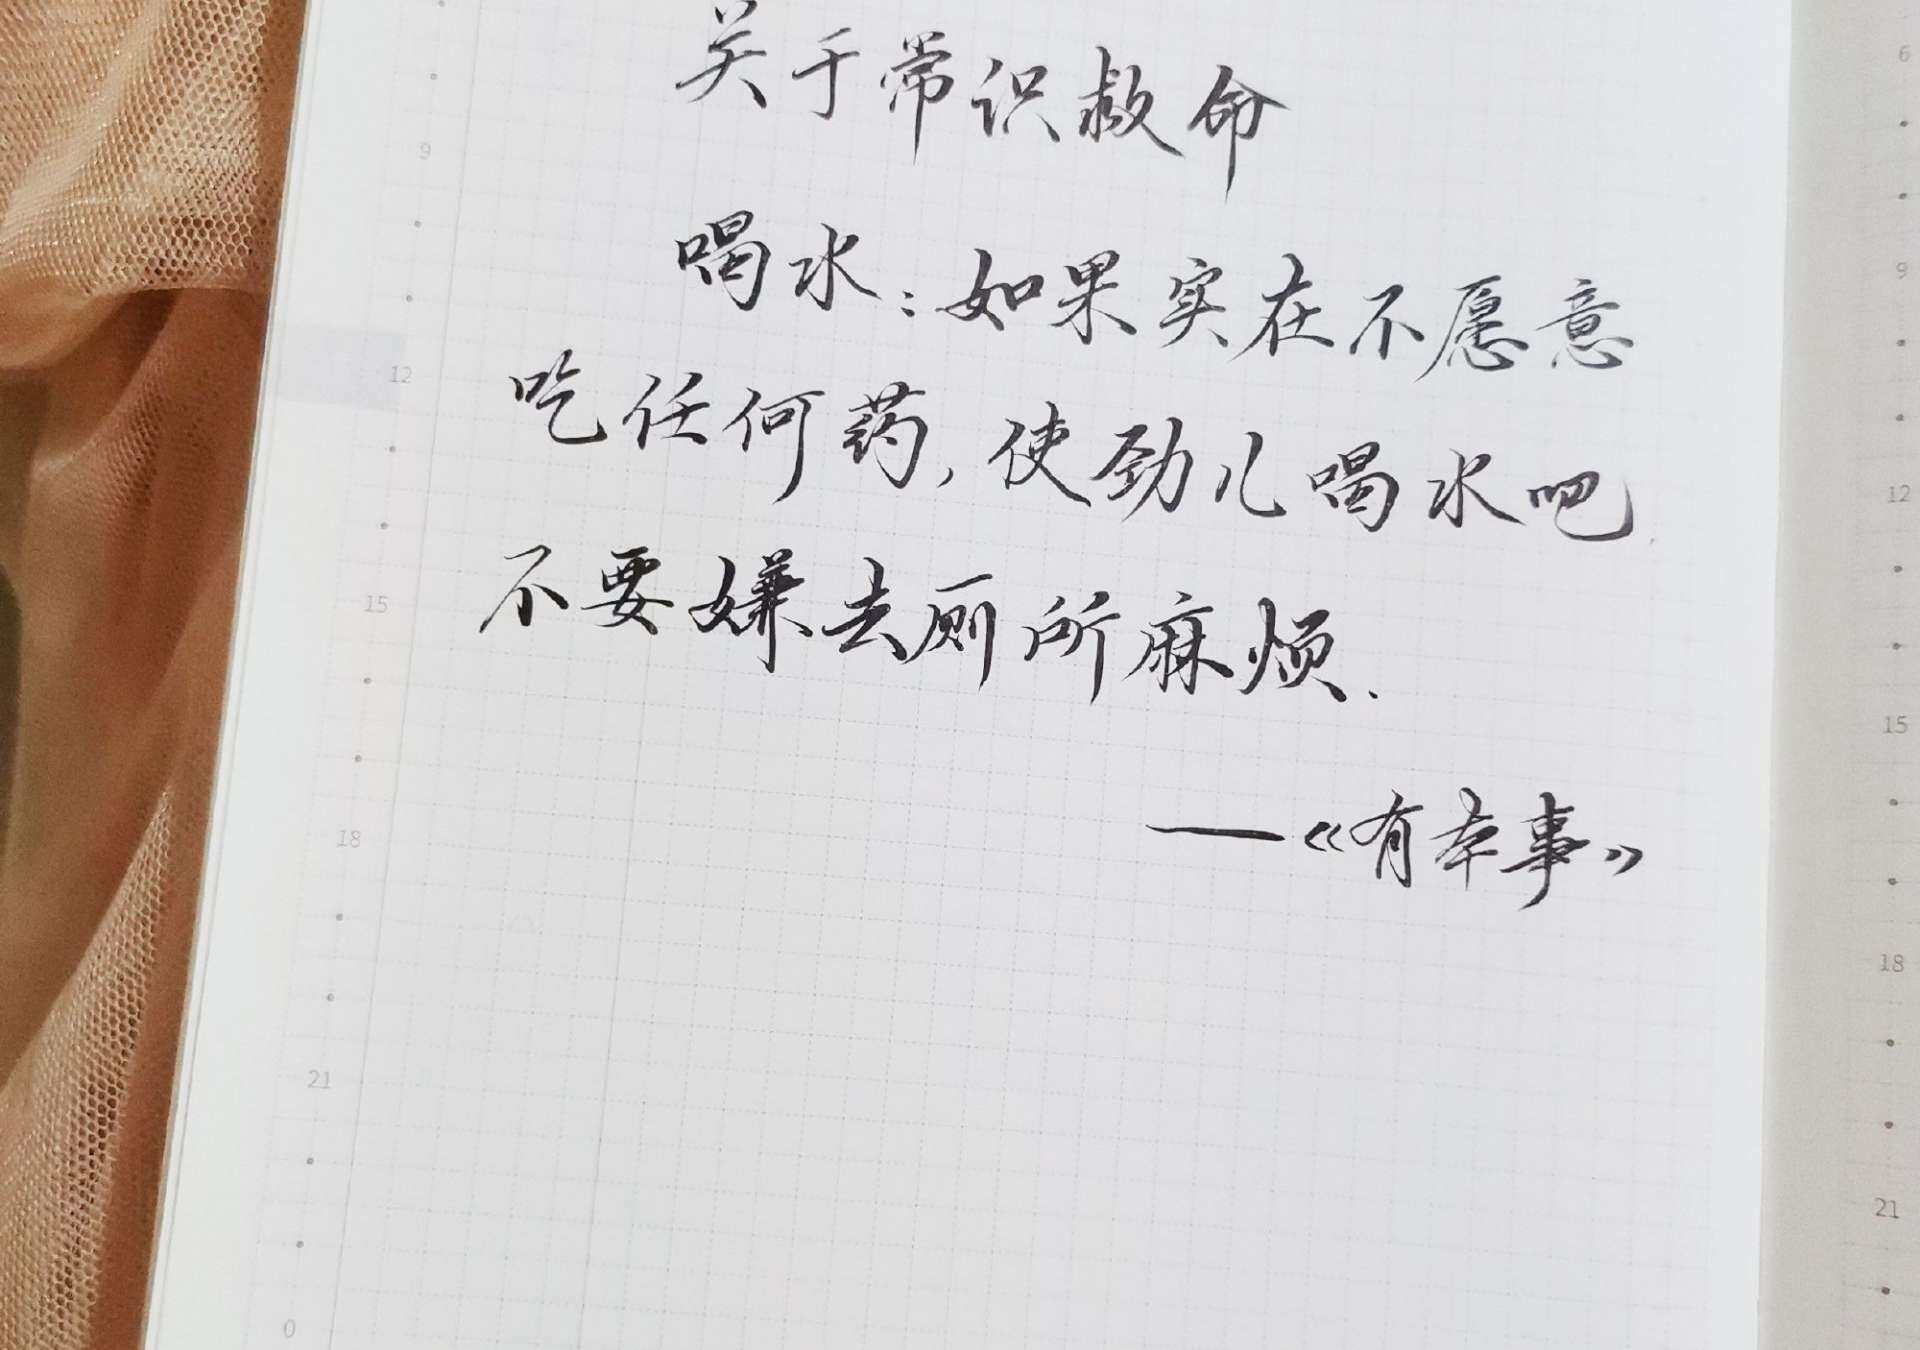 关于常识救命
喝水：如果实在不愿意
吃任何药，使劲儿喝水吧.
不要嫌去厕所麻烦.
—《有本事》
9
12
15
18
21
0
6
9
12
15
18
21